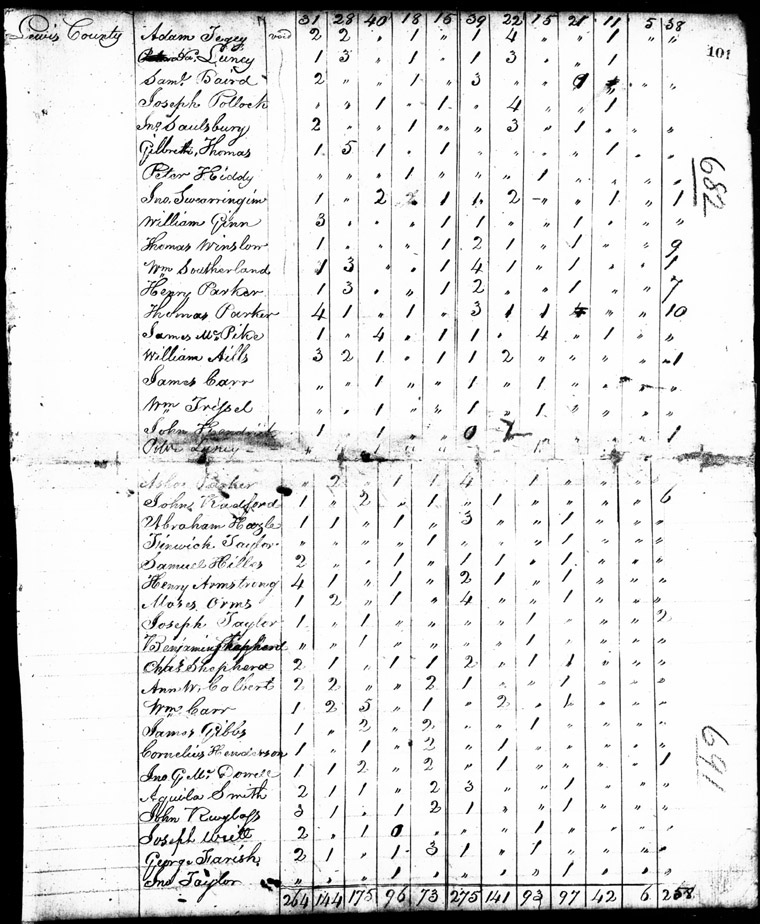 31 28 40 18 15 39 22 15 21 11 5 38
Lewis County Adam void 2 2 " 1 " 1 4 " " 1 " "
101
Luncy 1 3 " 1 " 1 3 " " 1
Saml. Baird 2 " " 1 " 3 " "
Joseph Pollock " " 1 " 1 " 4 " " 1
Jno. Saulsbury 2 " " 1 " " 3 " 1 " " "
Thomas 1 5 1 " 1 " " " " 1 " "
Peter Hiddy " " " 1 " " " 1 " " " "
682
Jno. Swearringim 1 " 2 " 1 1 2 " " 1 " 1
William Ginn 3 " " " 1 1 " " 1 " " "
Thomas Winslow 1 " " " 1 2 1 " 1 " " 9
Wm Southerland 1 3 " " 1 4 1 " 1 " " 1
Henry Parker 1 3 " " 1 2 " " 1 " " 7
Thomas Parker 4 1 " 1 " 3 1 1 " " 10
James McPike 1 " 4 " 1 1 " 4 " 1 " "
William Aills 3 2 1 " 1 1 2 " " " " 1
James Carr " " 1 " " 1 " 1 " " "
Wm Trissel " " 1 " " 1 " 1 " " " "
John 1 1 0 1
Luncy
Parker " 2 " 1 1 4 " 1 " " " "
John Radford 1 " 2 " 1 " 1 " " " " 6
Abraham Hazle 1 1 " 1 " 3 " " 1 " " "
Taylor " " " " 1 " " " 1 " " "
Samuel Hilles 2 " " 1 " 1 1 " 1 " " "
Henry Armstrong 4 1 " 1 " 2 1 " 1 " " "
Moses Orms 1 2 " 1 " 4 " " 1 " " "
Joseph Taylor 1 " 1 " " " " 1 " " " 2
Benjamin Shepherd " " 1 " " " " 1 " " " "
Chas Shepherd 2 1 " 1 1 2 " 1 1 " " "
Ann W. Colbert 2 2 " " 2 1 " " 1 " " "
Wm Carr 1 2 5 " 1 " 2 " 1 " " "
James Gibbs 1 " 2 " 2 " " 1 " " " "
691
Cornelius Henderson 1 " 1 " 2 " 1 " " " " "
Jno G. McDowell 1 1 2 " 2 " 1 " " " " 1
Aquila Smith 2 1 1 " 2 3 " " 1 " " "
John 3 1 " 1 2 1 " " 1 " " "
Joseph 2 " 1 0 " " " 1 " " " "
George Farish 2 1 " 1 3 1 " 1 " " " "
Jno Taylor " " " 1 " " " " 1 " " "
264 144 175 96 73 275 141 93 97 42 6 258